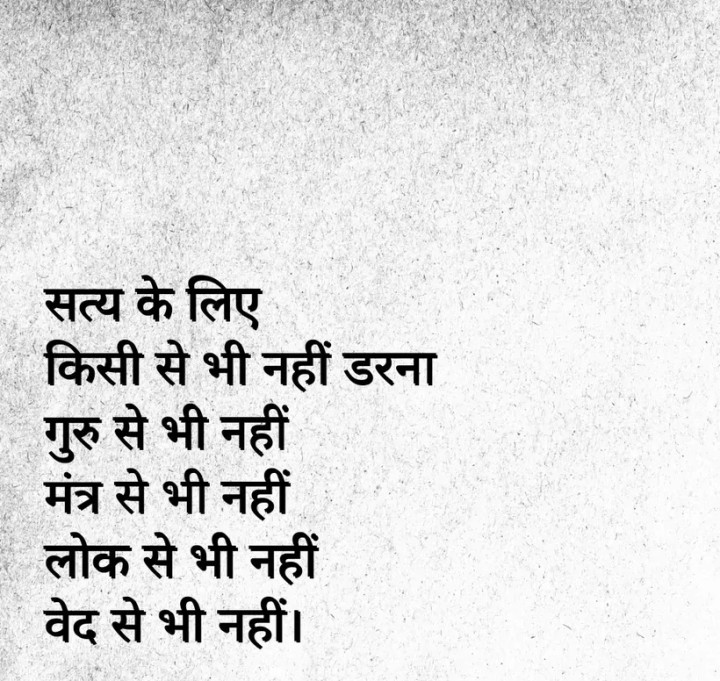 सत्य के लिए
किसी से भी नहीं डरना
गुरु से भी नहीं
मंत्र से भी नहीं
लोक से भी नहीं
वेद से भी नहीं।